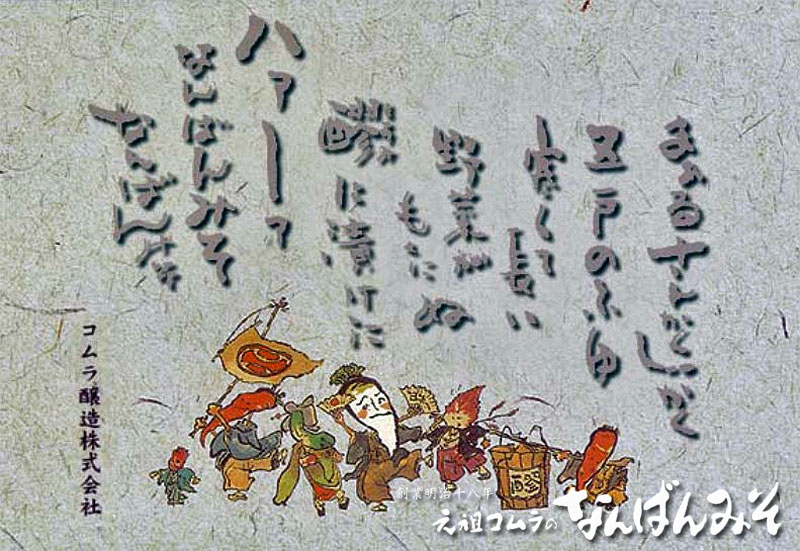 まぁるさんかくしぃかく
五戸のふゆ
寒くて長い
野菜がもたぬ
醪に漬けに
ハアーア
なんばんみそ
なんばんみそ
コムラ醸造株式会社
創業明治十八年
元祖コムラのなんばんみそ